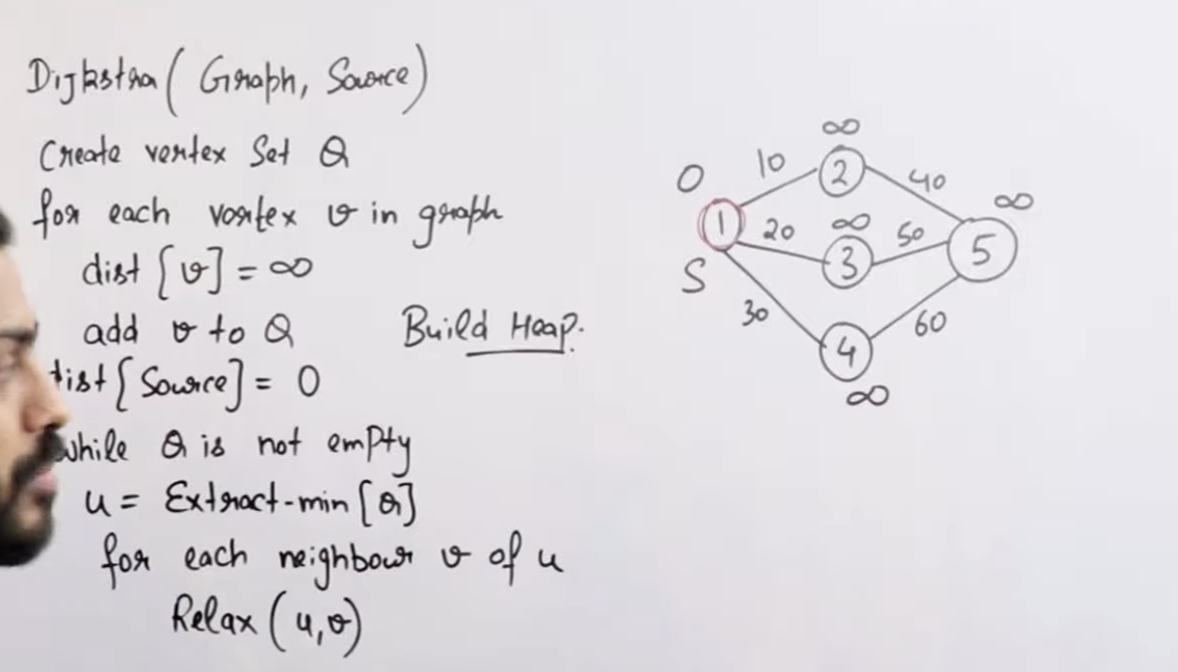 Dijkstra( Graph, Source)
Create vertex Set Q
for each vortex v in graph
dist [v] = ∞
add v to Q
Build Heap.
dist [Source] = 0
while Q is not empty
u = Extract-min [Q]
for each neighbour v of u
Relax (u,v)
∞
0 10 2 40
∞
1 20 ∞ 50 5
3
S
30 60
4
∞